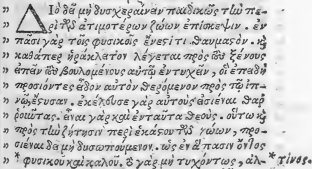 Διὸ δὰ μὴ δυσχεραίναν παιδικῶς τὼ πε-
ρὶ τῶν ἀτιμοτέρων ζώων ἐπίσκεψιν. ἐν
πᾶσι γὰρ τοῖς φυσικοῖς ἔνεστί τι θαυμαστόν. καὶ
καθάπερ ἡράκλατον λέγεται πρὸς τοὺς ξένους
εἰπᾶν τοὺς βουλομένους αὐτῷ ἐντυχᾶν, οἳ ἐπειδὴ
προσιόντες εἶδον αὐτὸν θερόμενον πρὸς τῷ ἰπ-
νῷ, ἔστησαν. ἐκέλευσε γὰρ αὐτοὺς εἰσιέναι θαῤ
ῥοῦντας. εἶναι γὰρ καὶ ἐνταῦθα θεούς. οὕτω καὶ
πρὸς τὼ ζήτησιν περὶ ἑκάστου τῶν ζώων, προ-
σιέναι δὰ μὴ δυσωπούμενον. ὡς ἐν ἅπασιν ὄντος
* φυσικοῦ καὶ καλοῦ. ὃ γὰρ μὴ τυχόντως, ἀλ- * τίνος.